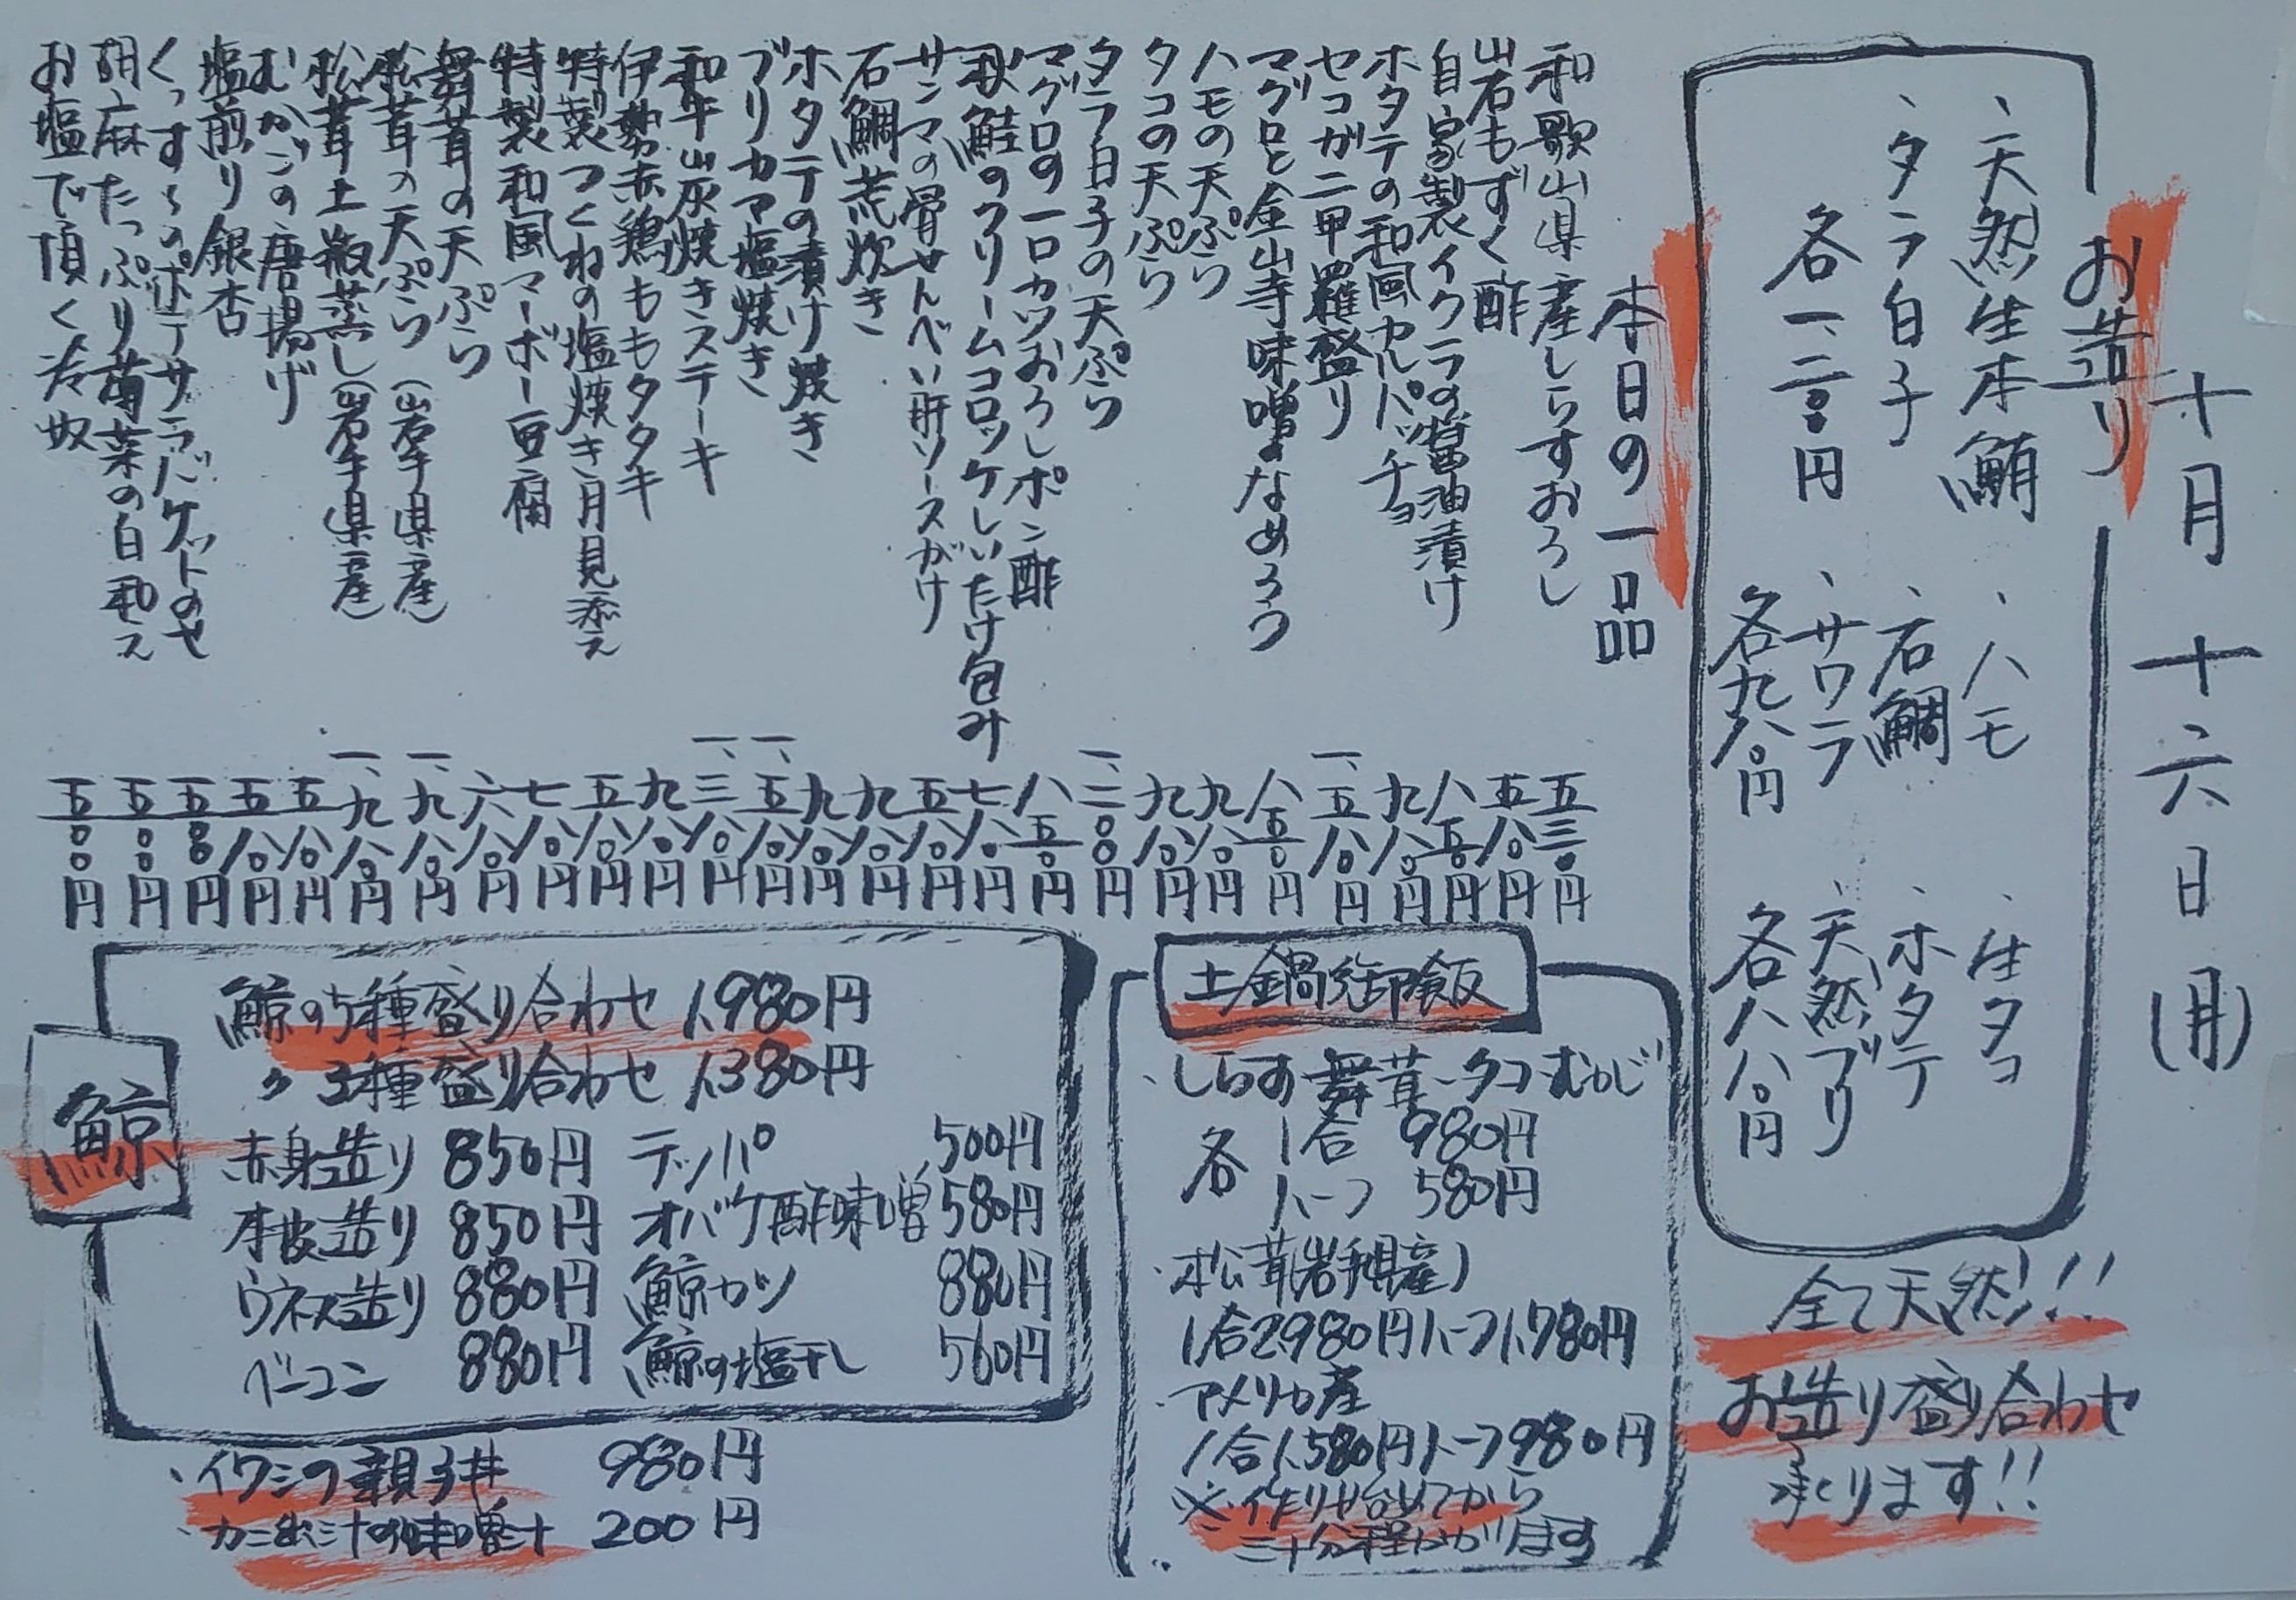 十月十六日(月)
お造り
、天然生本鮪
、タラ白子
各一、二〇〇円
、ハモ
、石鯛
、サワラ
各九八〇円
、生タコ
、ホタテ
、天然ブリ
各八八〇円
全て天然!!
お造り盛り合わせ
承ります!!
本日の一品
和歌山県産しらすおろし 五三〇円
岩もずく酢 五八〇円
自家製イクラの醤油漬け 八五〇円
ホタテの和風カルパッチョ 九八〇円
セコガニ甲羅盛り 一、五八〇円
マグロと金山寺味噌なめろう 八五〇円
ハモの天ぷら 九八〇円
タコの天ぷら 九八〇円
タラ白子の天ぷら 一、二〇〇円
マグロの一口カツおろしポン酢 八五〇円
秋鮭のクリームコロッケしいたけ包み 七八〇円
サンマの骨せんべい肝ソースがけ 五八〇円
石鯛荒炊き 九八〇円
ホタテの漬け焼き 九八〇円
ブリカマ塩焼き 一、五八〇円
和牛山灰焼きステーキ 一、三八〇円
伊勢赤鶏ももタタキ 九八〇円
特製つくねの塩焼き月見添え 五八〇円
特製和風マーボー豆腐 七八〇円
舞茸の天ぷら 六八〇円
松茸の天ぷら(岩手県産) 一、九八〇円
松茸土瓶蒸し(岩手県産) 一、九八〇円
むかごの唐揚げ 五八〇円
塩煎り銀杏 五八〇円
くっすくのポテサラバケットのせ 五〇〇円
胡麻たっぷり菊菜の白和え 五〇〇円
お塩で頂く冷奴 五〇〇円
土鍋御飯
・しらす・舞茸・タコ・むかご
各 1合 980円
ハーフ 580円
・松茸(岩手県産)
1合2,980円ハーフ1,780円
・アメリカ産
1合1,580円ハーフ980円
※作り始めてから
三十分程かかります
鯨
鯨の5種盛り合わせ 1,980円
〃 3種盛り合わせ 1,380円
赤身造り 850円 テッパ 500円
本皮造り 850円 オバケ酢味噌 580円
ウネス造り 880円 鯨カツ 880円
ベーコン 880円 鯨の塩干し 560円
・イワシの親子丼 980円
・カニ出汁の味噌汁 200円